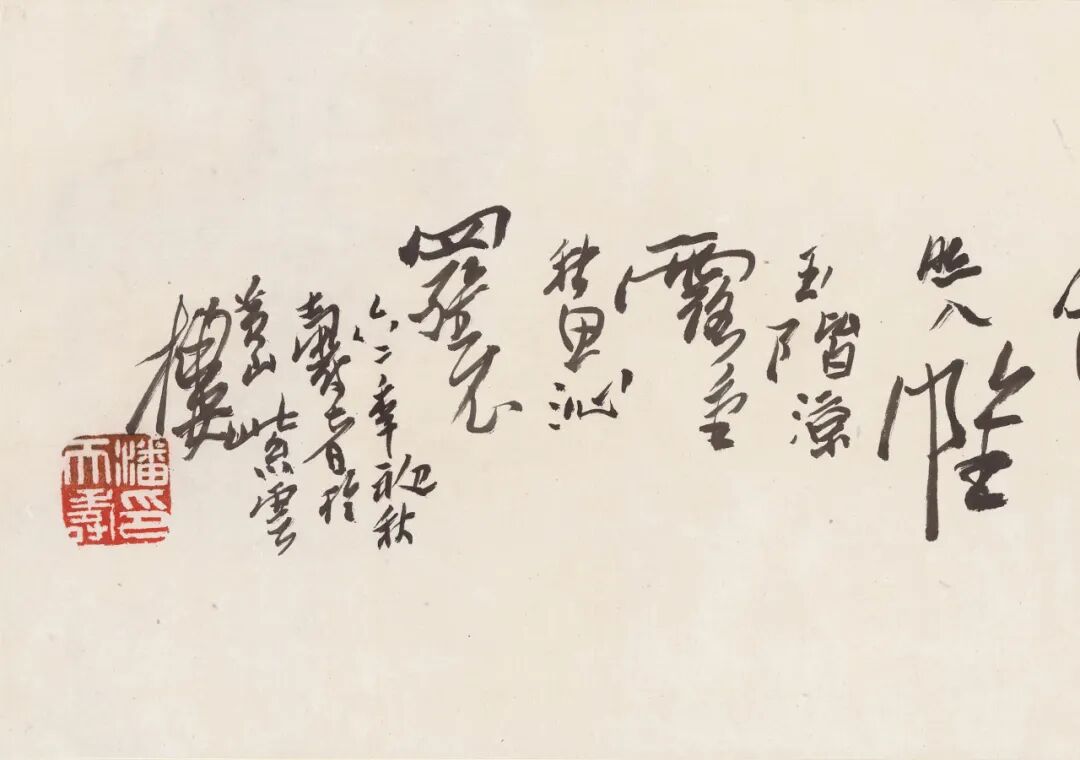 照入
帷
玉階涼
露重
秋思沁
羅衣
六二年初秋
壽
於
黃山
紫雲
樓
潘天壽印